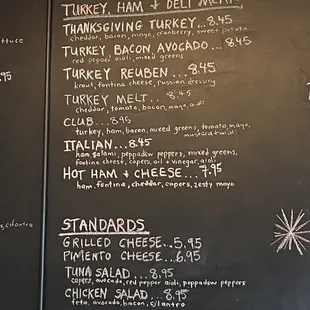 TURKEY, HAM & DELI MEATS
THANKSGIVING TURKEY...8.45
cheddar, bacon, mayo, cranberry, sweet potato
TURKEY, BACON AVOCADO...8.45
red pepper aioli, mixed greens
TURKEY REUBEN...8.45
kraut, fontina cheese, russian dressing
TURKEY MELT...8.45
cheddar, tomato, bacon, mayo, aioli
CLUB...8.95
turkey, ham, bacon, mixed greens, tomato, mayo,
mustard aioli
ITALIAN...8.45
ham, salami, peppadew peppers, mixed greens,
fontina cheese, capers, oil + vinegar, aioli
HOT HAM & CHEESE...7.95
ham, fontina, cheddar, capers, zesty mayo
STANDARDS
GRILLED CHEESE...5.95
PIMIENTO CHEESE...6.95
TUNA SALAD...8.45
capers, avocado, red pepper aioli, peppadew peppers
CHICKEN SALAD...8.95
feta, avocado, bacon, cilantro
ttuce
95
, cilantro